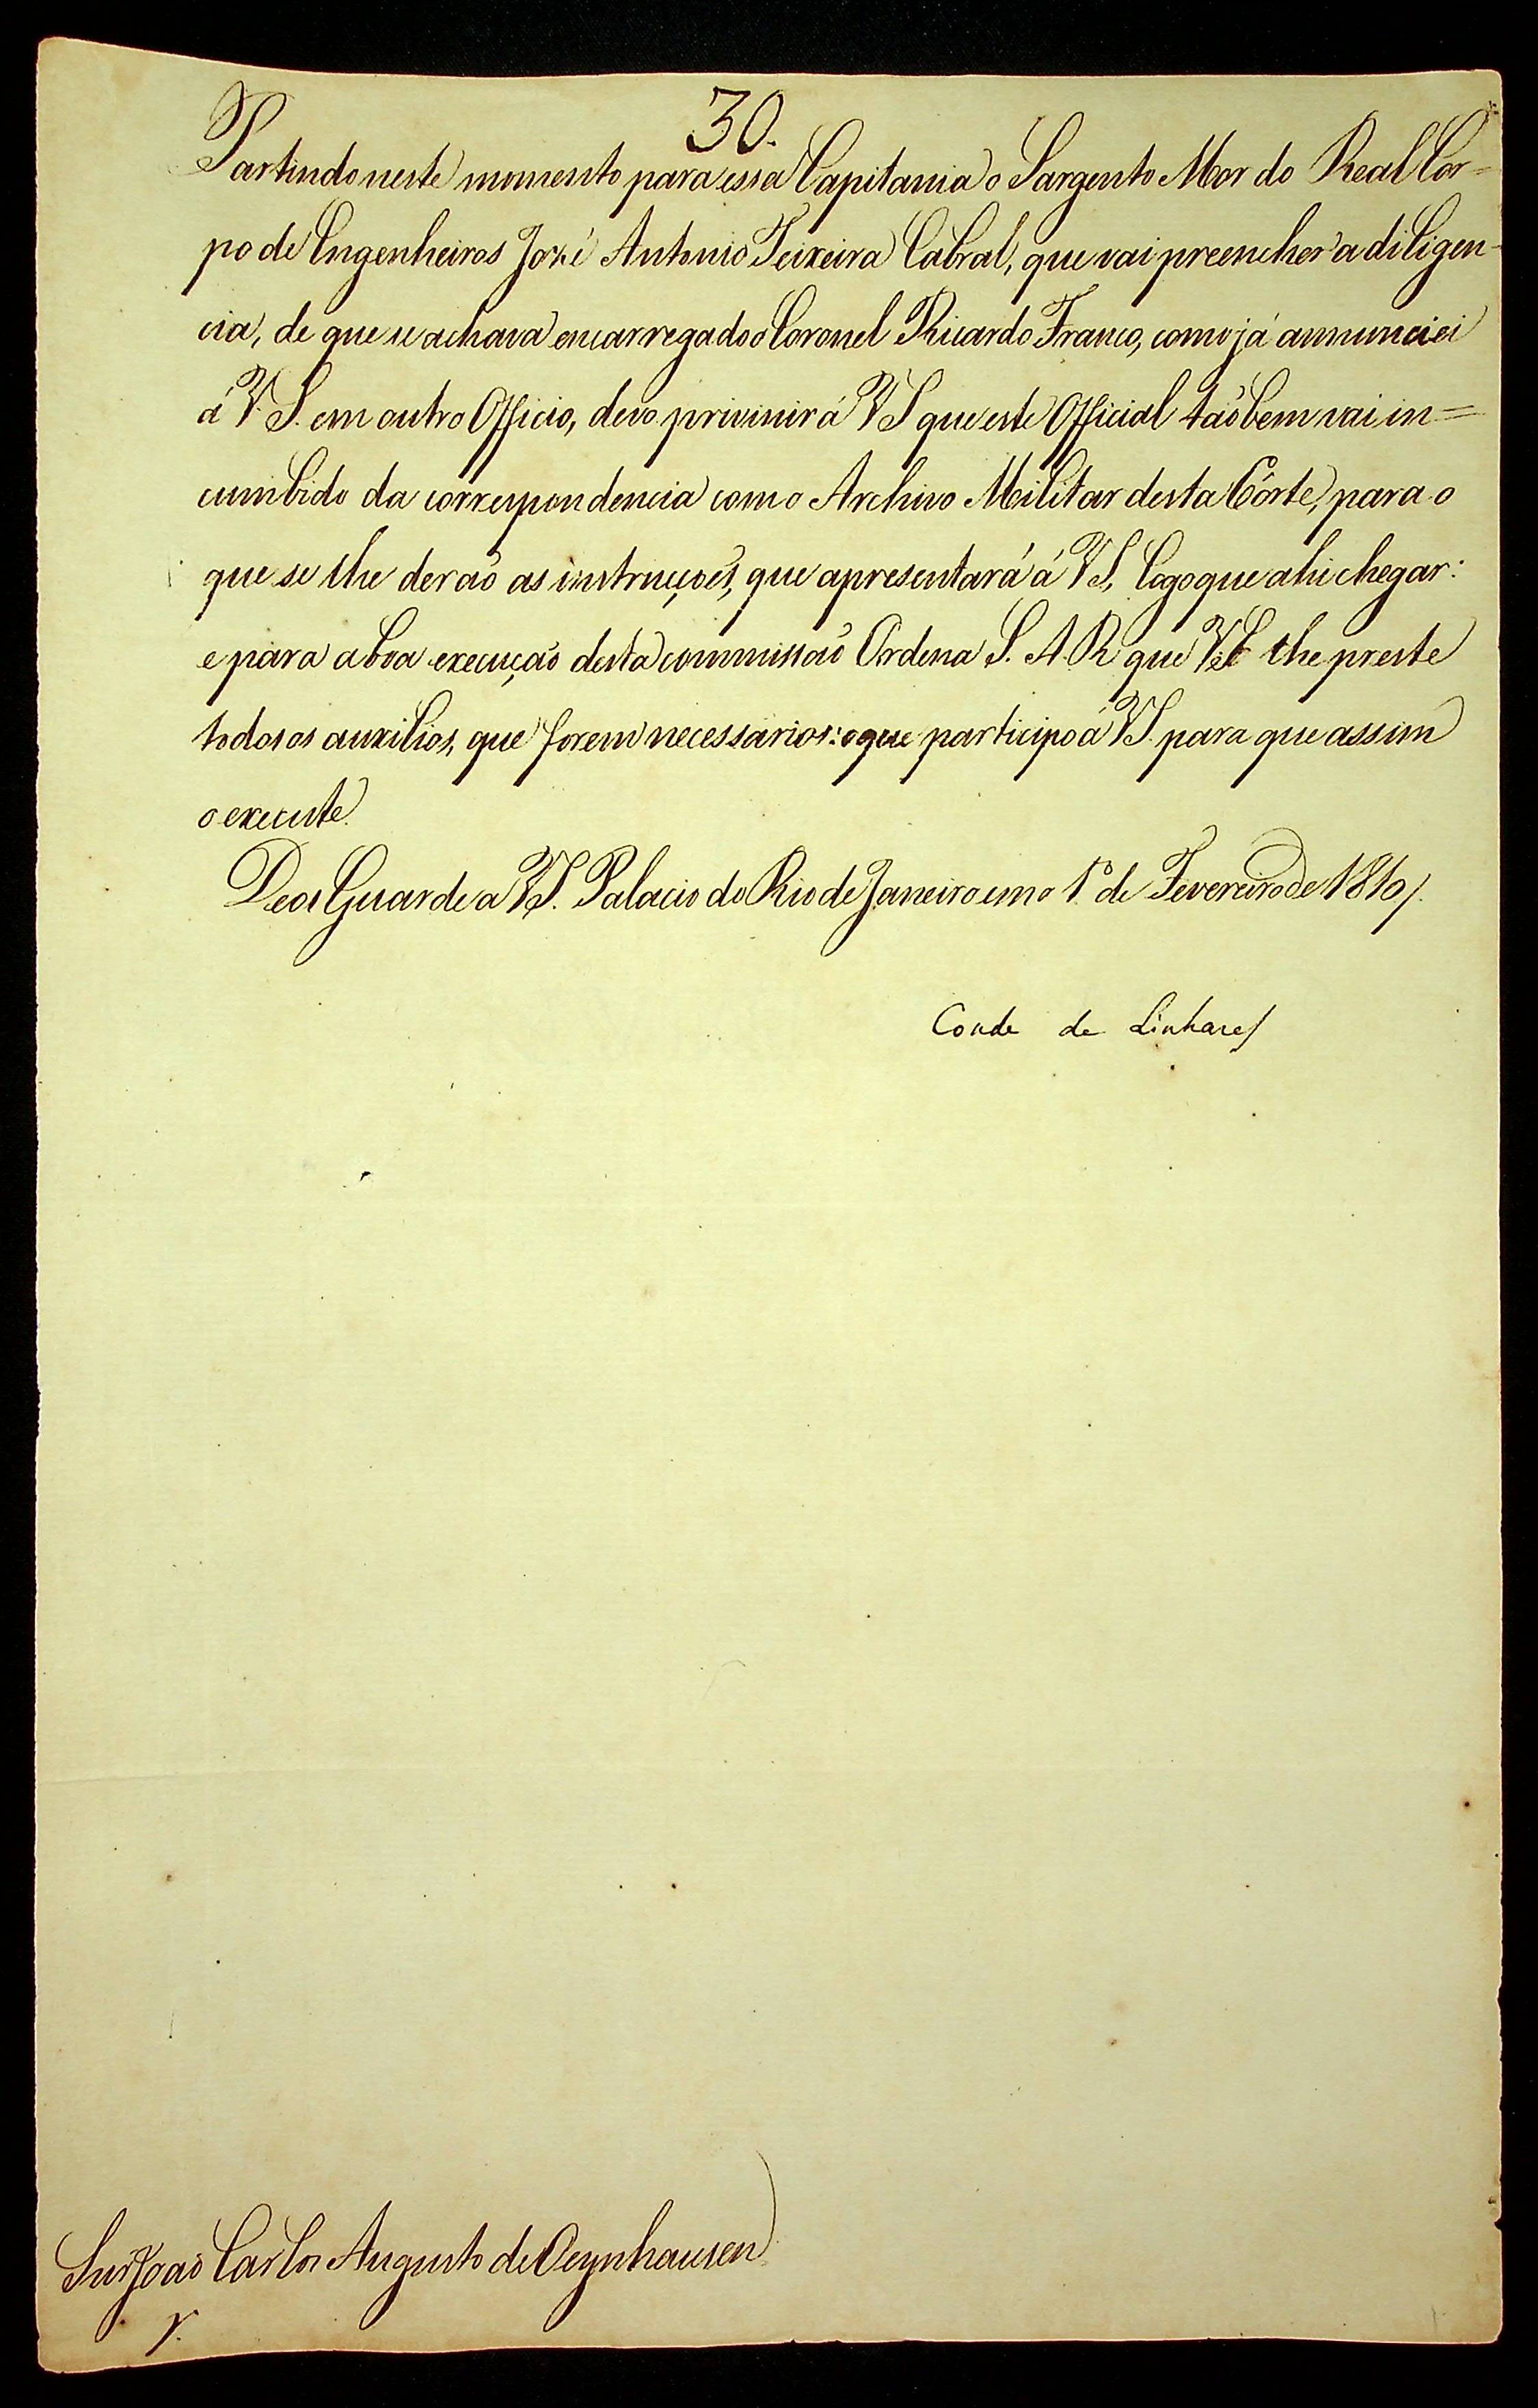 30.
Partindo neste momento para essa Capitania o Sargento Mor do Real Cor=
po de Engenheiros Jozé Antonio Teixeira Cabral, que vai preencher a diligen-
cia, de que se achava encarregado o Coronel Ricardo Franco, como já annunciei
á V. S. em outro Officio, devo privinir á VS que este Official taõbem vai in=
cumbido da correspondencia com o Archivo Militar desta Côrte, para o
que se lhe deraõ as instrucçoẽs, que apresentará á VS, logo que ahi chegar:
e para a boa execuçaõ desta commissaõ Ordena S. A. R que VS lhe preste
todos os auxilios, que forem necessarios: o que participo á VS. para que assim
o execute.
Deos Guarde a VS. Palacio do Rio de Janeiro em o 1º de Fevereiro de 1810/.
Conde de Linhares
Snr Joaõ Carlos Augusto de Oeynhausen